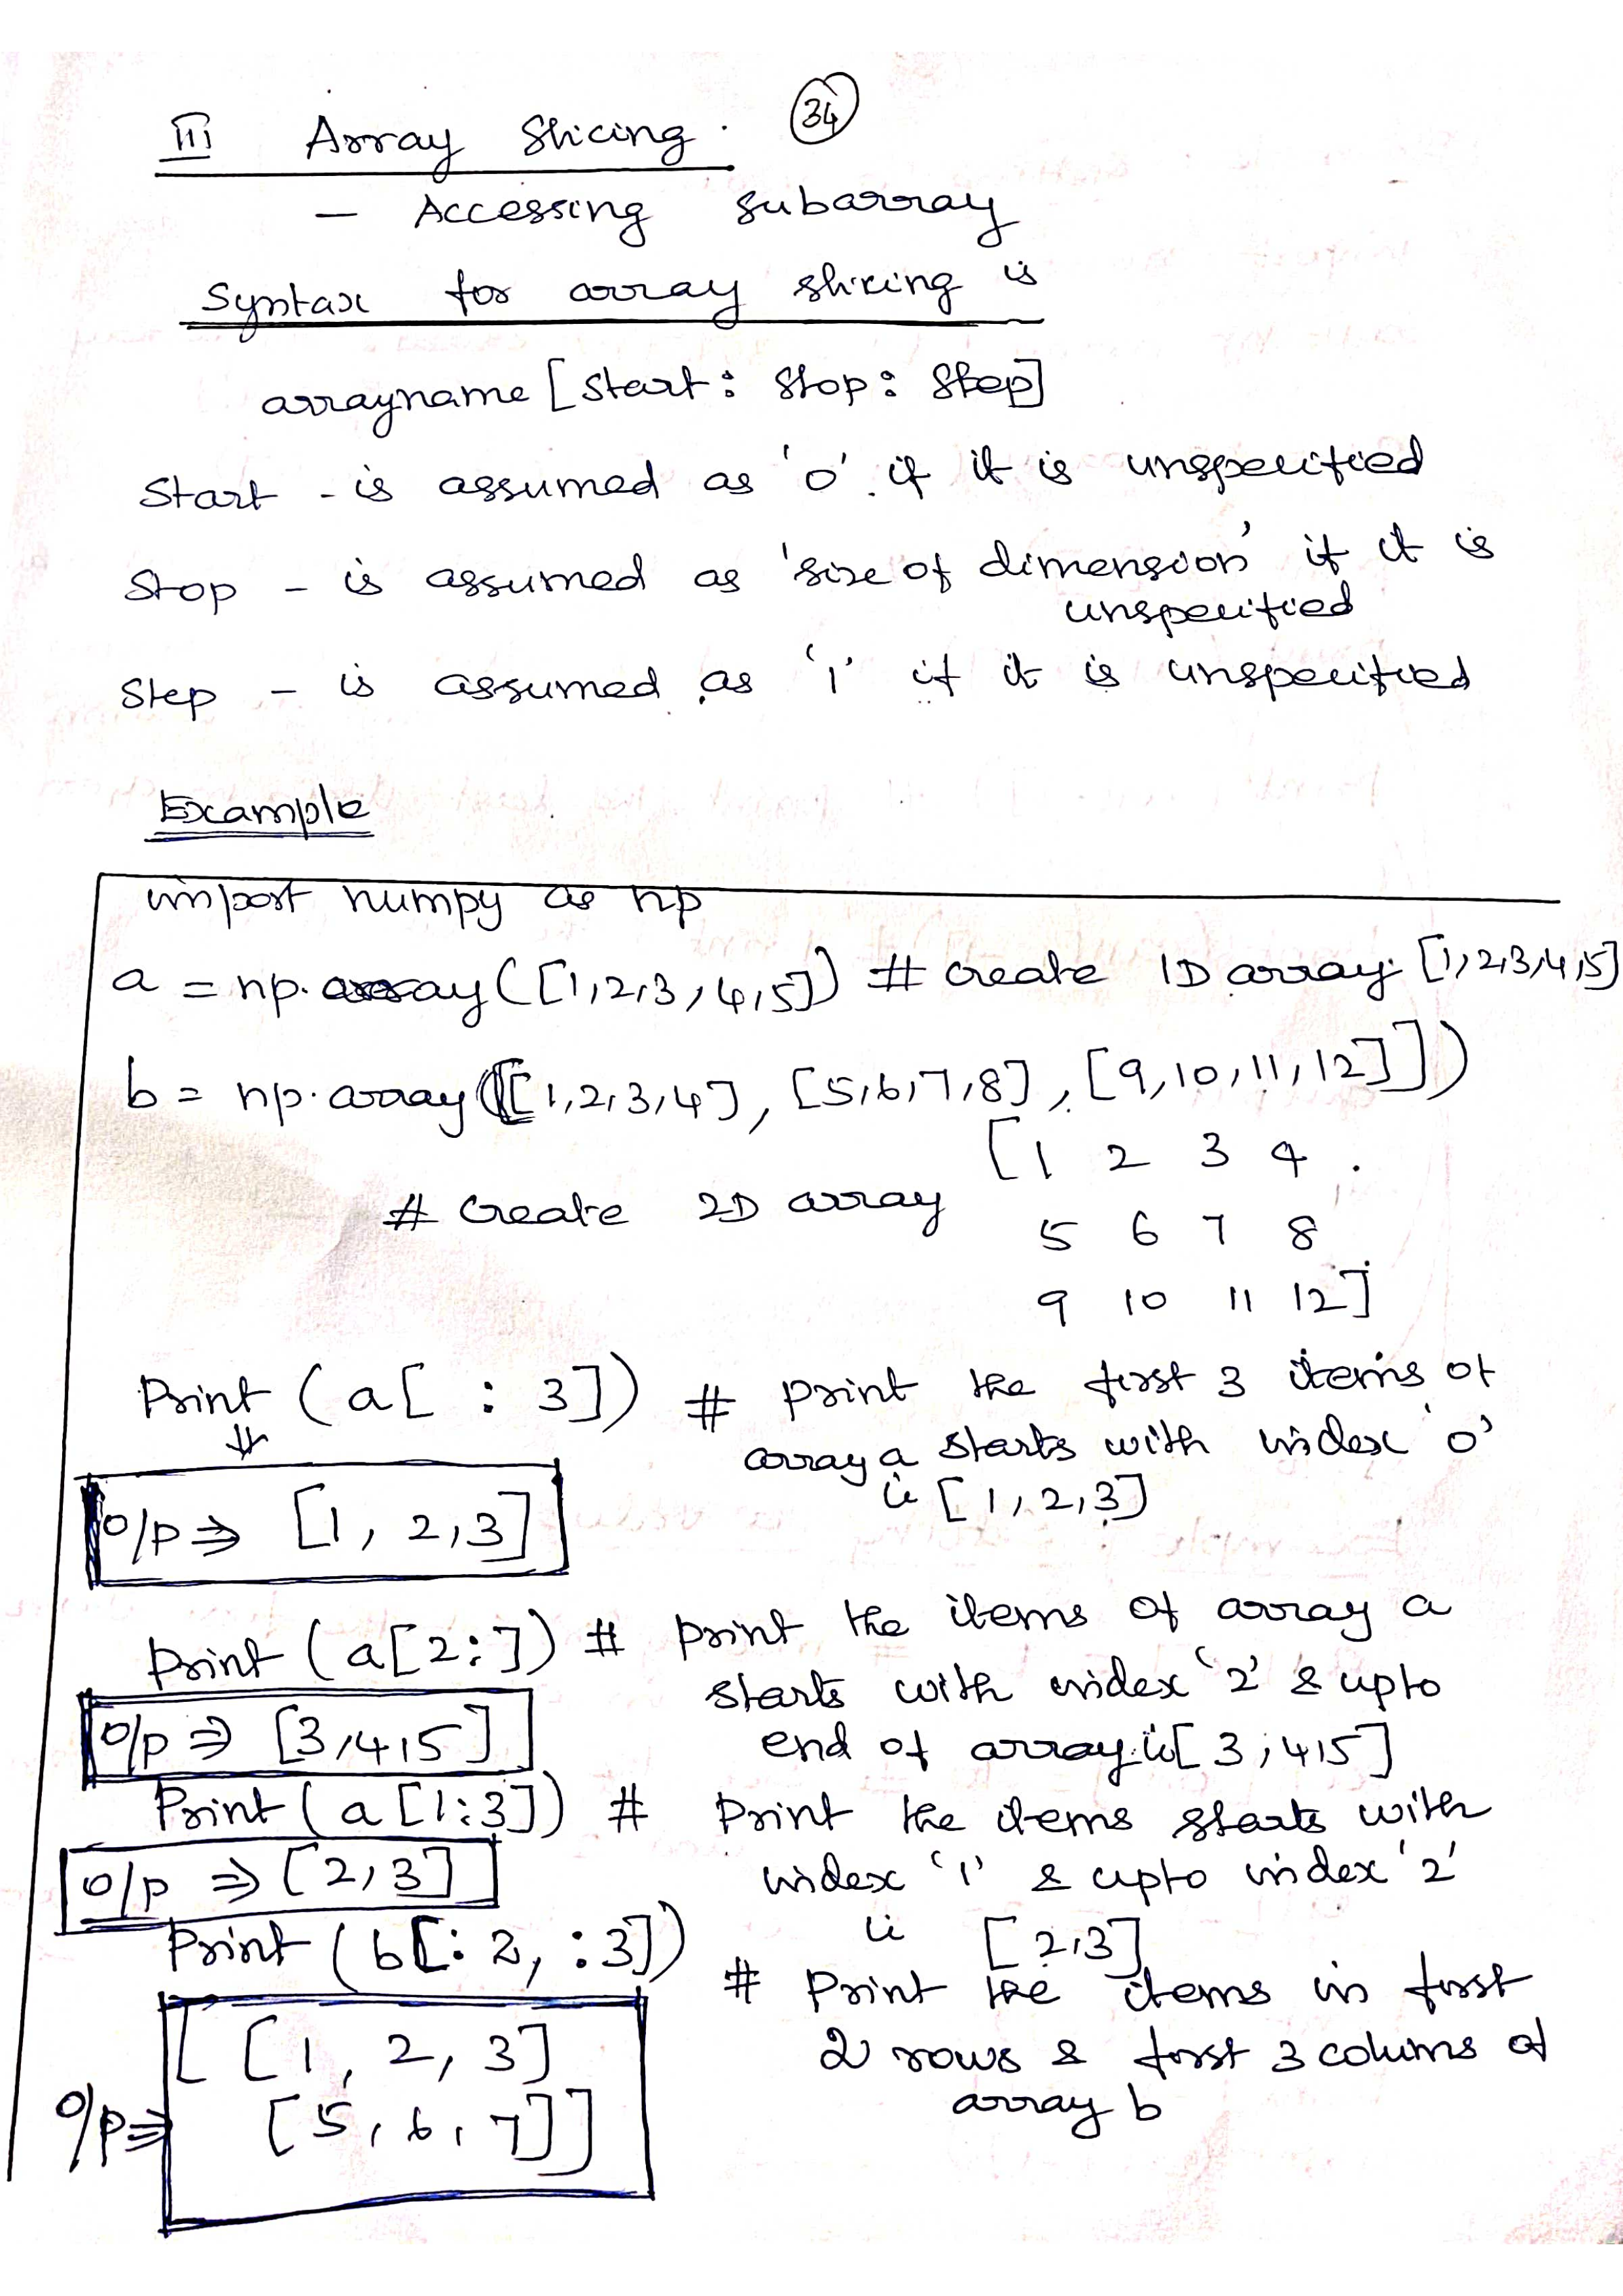 34
III Array Slicing.
- Accessing subarray
Syntax for array slicing is
arrayname [start : stop : step]
Start - is assumed as '0' if it is unspecified
Stop - is assumed as 'size of dimension' if it is
unspecified
Step - is assumed as '1' if it is unspecified
Example
import numpy as np
a = np.array([1,2,3,4,5]) # create 1D array [1,2,3,4,5]
b = np.array([[1,2,3,4], [5,6,7,8], [9,10,11,12]])
[1 2 3 4
# create 2D array
5 6 7 8
9 10 11 12]
Print (a[ : 3]) # print the first 3 items of
array a starts with index '0'
ie [1,2,3]
o/p ⇒ [1, 2,3]
print (a[2:]) # print the items of array a
starts with index '2' & upto
o/p ⇒ [3,4,5]
end of array ie [3,4,5]
Print (a[1:3]) # Print the items starts with
o/p ⇒ [2,3]
index '1' & upto index '2'
ie [2,3]
Print (b[:2, :3])
# Print the items in first
2 rows & first 3 colums of
array b
[[1, 2, 3]
o/p ⇒ [5, 6, 7]]